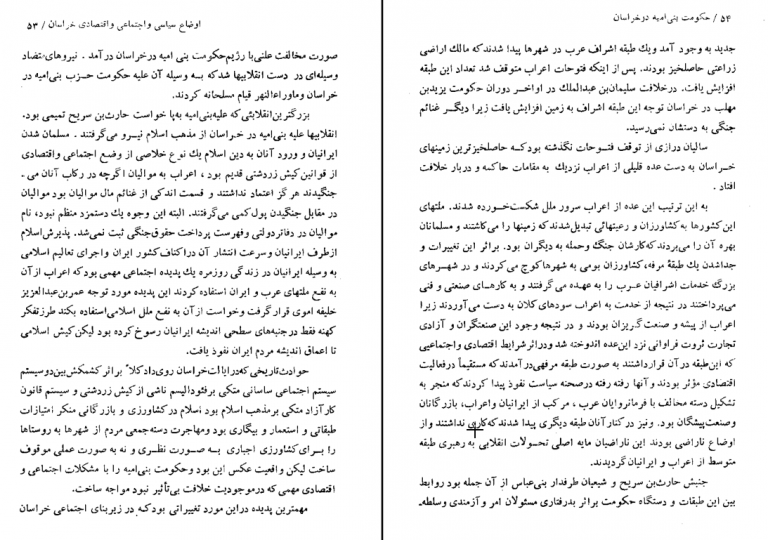 اوضاع سیاسی و اجتماعی و اقتصادی خراسان / ۵۳
صورت مخالفت علنی با رژیم حکومت بنی امیه در خراسان در آمد . نیروهای متضاد
وسیله‌ای در دست انقلابیها شد که به وسیله آن علیه حکومت حزب بنی‌امیه در
خراسان و ماوراءالنهر قیام مسلحانه کردند.
بزرگترین انقلابی که علیه بنی‌امیه به‌پا خواست حارث‌بن سریح تمیمی بود.
انقلابیها علیه بنی‌امیه در خراسان از مذهب اسلام نیرو می‌گرفتند . مسلمان شدن
ایرانیان و ورود آنان به دین اسلام یك نوع خلاصی از وضع اجتماعی و اقتصادی
از قوانین کیش زردشتی قدیم بود ، اعراب به موالیان اگرچه در رکاب آنان می -
جنگیدند هرگز اعتماد نداشتند و قسمت اندکی از غنائم مال موالیان بود موالیان
در مقابل جنگیدن پول کمی می‌گرفتند. البته این وجوه یك دستمزد منظم نبود، نام
موالیان در دفاتر دولتی وفهرست پرداخت حقوق جنگی ثبت نمی‌شد. پذیرش اسلام
از طرف ایرانیان و سرعت انتشار آن در اکناف کشور ایران و اجرای تعالیم اسلامی
به وسیله ایرانیان در زندگی روزمره یك پدیده اجتماعی مهمی بود که اعراب از آن
به نفع ملتهای عرب و ایران استفاده کردند این پدیده مورد توجه عمربن عبدالعزیز
خلیفه اموی قرار گرفت و خواست از آن به نفع ملل اسلامی استفاده بکند طرز تفکر
کهنه فقط در جنبه‌های سطحی اندیشه ایرانیان رسوخ کرده بود لیکن کیش اسلامی
تا اعماق اندیشه مردم ایران نفوذ یافت.
حوادث تاریخی که در ایالت خراسان روی داد کلاً براثر کشمکش بین دو سیستم
سیستم اجتماعی ساسانی متکی بر فئودالیسم ناشی از کیش زردشتی و سیستم قانون
کار آزاد متکی بر مذهب اسلام بود اسلام در کشاورزی و بازرگانی منکر امتیازات
طبقاتی و استعمار و بیگاری بود ومهاجرت دسته‌جمعی مردم از شهرها به روستاها
را بـرای کشاورزی اجباری بـه صورت نظـری و نه به صورت عملی موقوف
ساخت لیکن واقعیت عکس این بود وحکومت بنی‌امیه را با مشکلات اجتماعی و
اقتصادی مهمی که در موجودیت خلافت بی‌تأثیر نبود مواجه ساخت.
مهمترین پدیده در این مورد تغییراتی بود کـه در زیربنای اجتماعی خراسان
۵۴ / حکومت بنی‌امیه در خراسان
جدید به وجود آمد ویك طبقه اشراف عرب در شهرها پیدا شدند که مالك اراضی
زراعتی حاصلخیز بودند. پس از اینکه فتوحات اعراب متوقف شد تعداد این طبقه
افزایش یافت. در خلافت سلیمان‌بن عبدالملك در اواخر دوران حکومت یزیدبن
مهلب در خراسان توجه این طبقه اشراف به زمین افزایش یافت زیرا دیگر غنائم
جنگی به دستشان نمی‌رسید.
سالیان درازی از توقف فتـوحات نگذشته بود کـه حاصلخیزترین زمینهای
خـراسان به دست عده قلیلی از اعراب نزدیك به مقامات حاکمه و دربار خلافت
افتاد .
به این ترتیب این عده از اعراب سرور ملل شکست‌خورده شدند. ملتهای
این کشورها به کشاورزان و رعیتهائی تبدیل شدند که زمینها را می‌کاشتند و مسلمانان
بهره آن را می‌بردند که کارشان جنگ وحمله به دیگران بود. براثر این تغییرات و
جداشدن یك طبقه مرفه، کشاورزان بومی به شهرها کوچ می‌کردند و در شهـرهای
بزرگ خدمات اشرافیان عـرب را به عهـده می‌گرفتند و به کارهای صنعتی و فنی
می‌پرداختند در نتیجه از خدمت به اعراب سودهای کلان به دست می‌آوردند زیرا
اعراب از پیشه و صنعت گریزان بودند و در نتیجه وجود این صنعتگران و آزادی
تجارت ثروت فراوانی نزد این عده اندوخته شد و در اثر شرایط اقتصادی و اجتماعیی
که این طبقه در آن قرار داشتند به صورت طبقه مرفهی در آمدند که مستقیماً در فعالیت
اقتصادی مؤثر بودند و آنها رفته رفته در صحنه سیاست نفوذ پیدا کردند که منجر به
تشکیل دسته مخالف با فرمانروایان عرب ، مرکب از ایرانیان واعراب، بازرگانان
وصنعت‌پیشگان بود. ونیز در کنار آنان طبقه دیگری پیدا شدند که کاری نداشتند و از
اوضاع ناراضی بودند این ناراضیان مایه اصلی تحولات انقلابی به رهبری طبقه
متوسط از اعراب و ایرانیان گردیدند.
جنبش حارث‌بن سریح و شیعیان طرفدار بنی‌عباس از آن جمله بود روابط
بین این طبقات و دستگاه حکومت براثر بدرفتاری مسئولان امر و آزمندی وسلطه-